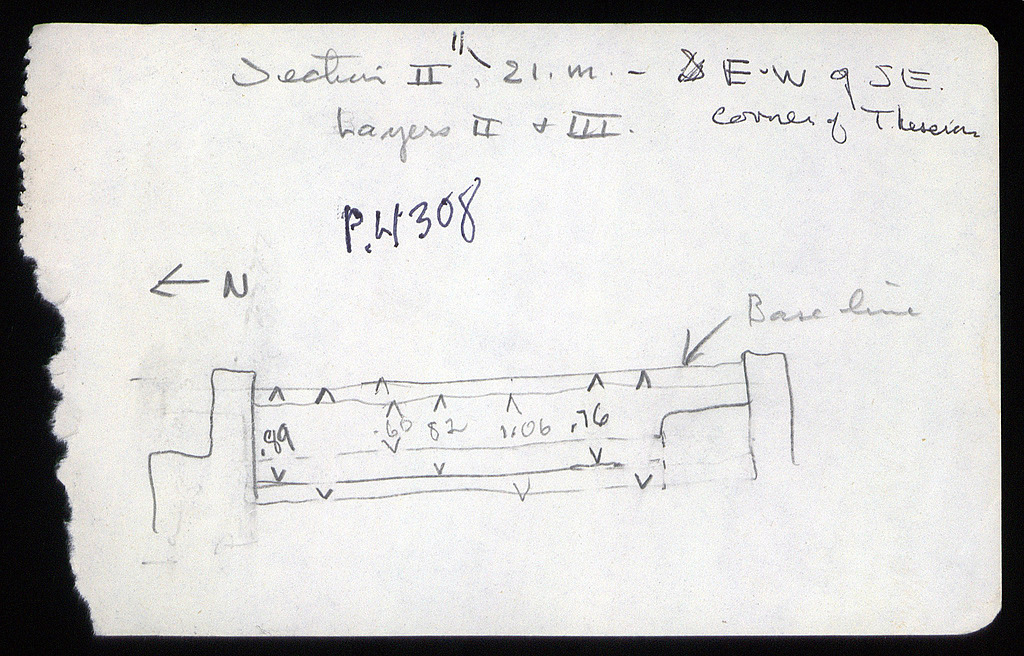 Section II", 21. m. - E-W of SE.
corner of Theseion
Layers II + III.
P.4308
← N
Base line
.89 .60 82 1.06 .76